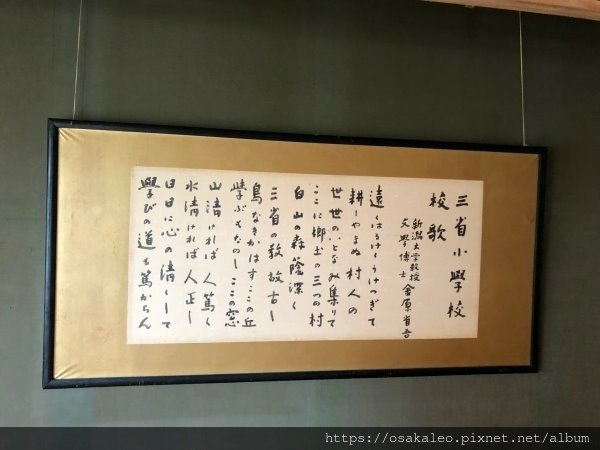 三省小學校
校歌
新潟大學教授
文學博士 金原省吾
遠くはるけくうけつぎて
耕しやまぬ村人の
世世のいとなみ集りて
ここに郷土の三つの村
白山の森蔭深く
三省の教故古し
鳥なきかはすここの丘
學ぶぞたのしここの窓
山清ければ人篤く
水清ければ人正し
日日に心の清くして
學びの道も篤からん
https://osakaleo.pixnet.net/album